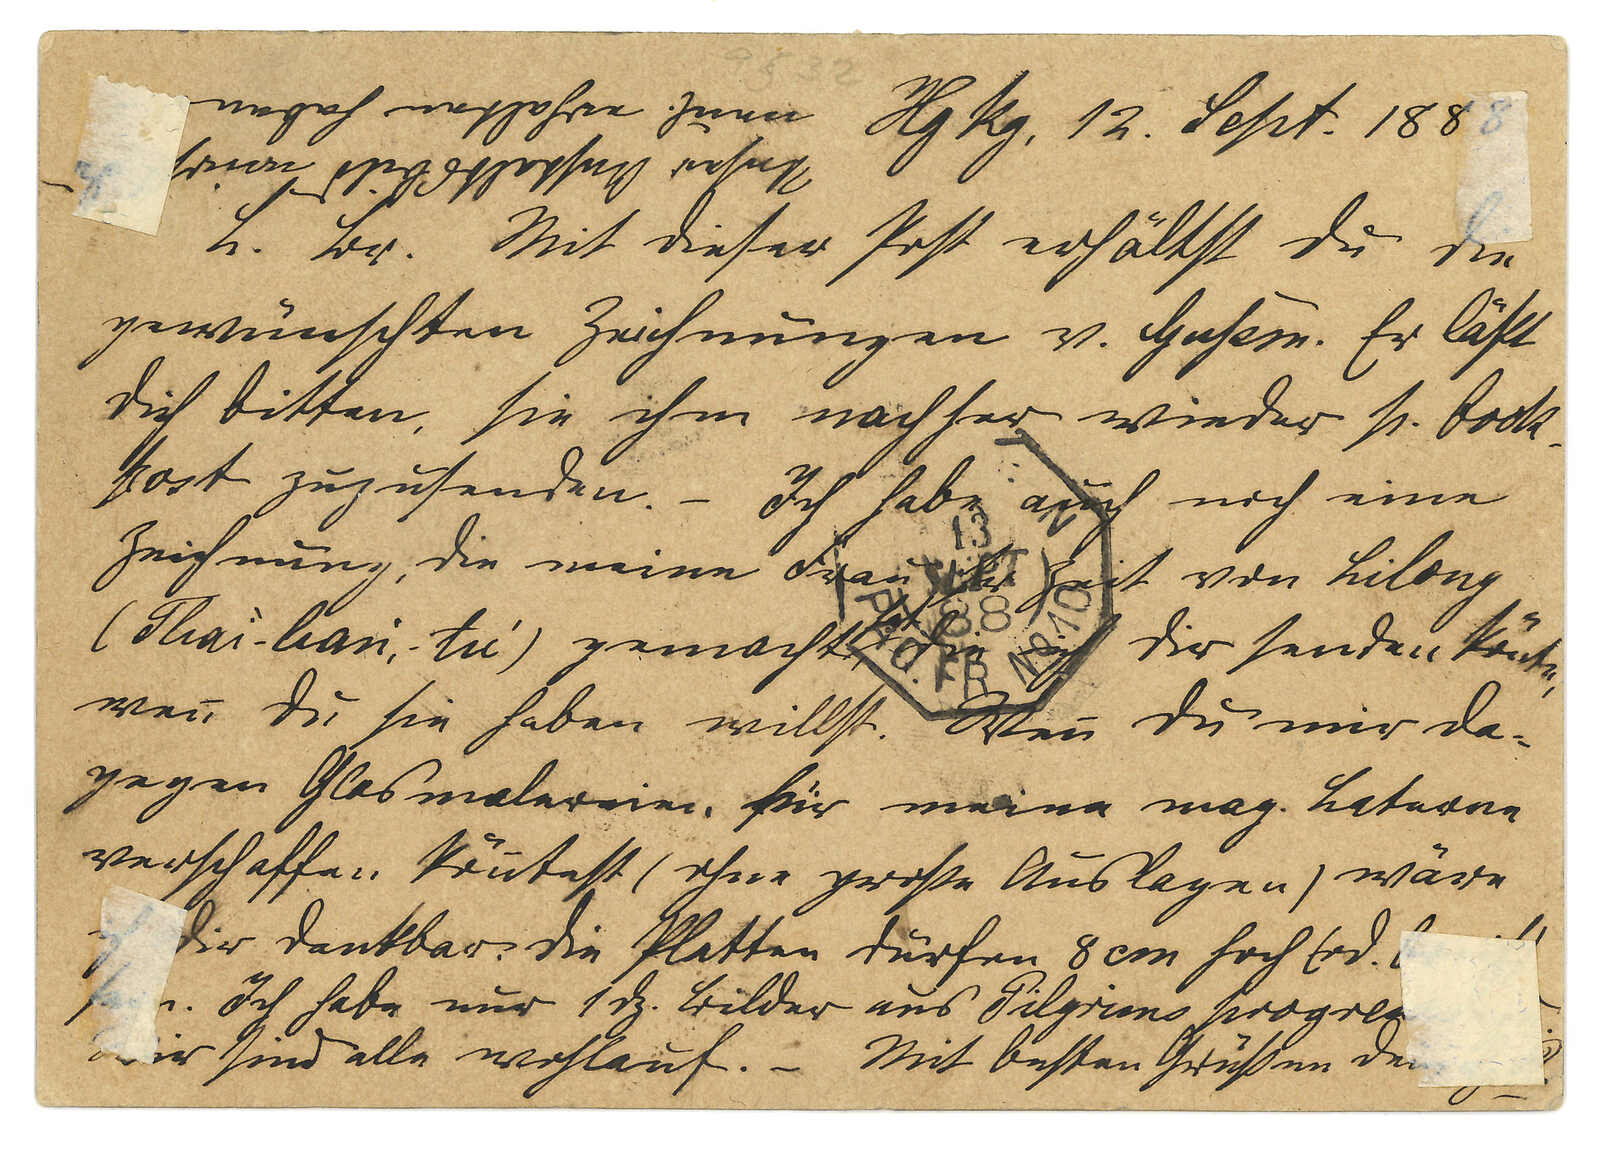 9832
Hgkg, 12. Sept. 1888
L. Br. Mit dieser Post erhältst Du die
gewünschten Zeichnungen v. Er läßt
Dich bitten, sie ihm nachher wieder p. Book-
post zuzusenden. – Ich habe auch noch eine
Zeichnung, die meine Frau zur Zeit von Lilong
gemacht, die ich Dir senden könnte,
wen̄ Du sie haben willst. Wen̄ Du mir da-
gegen Glasmalereien für meine mag. Laterne
verschaffen kön̄test (ohne große Auslagen) wäre
Dir dankbar. Die Platten dürfen 8 cm hoch
Ich habe nur 1 dz. Bilder aus Pilgrims progress
Wir sind alle wohlauf. – Mit besten Grüßen
Unser Anstaltsbild wirst
erhalten haben
13
SEPT
88
PAQ. FR. Nº 10